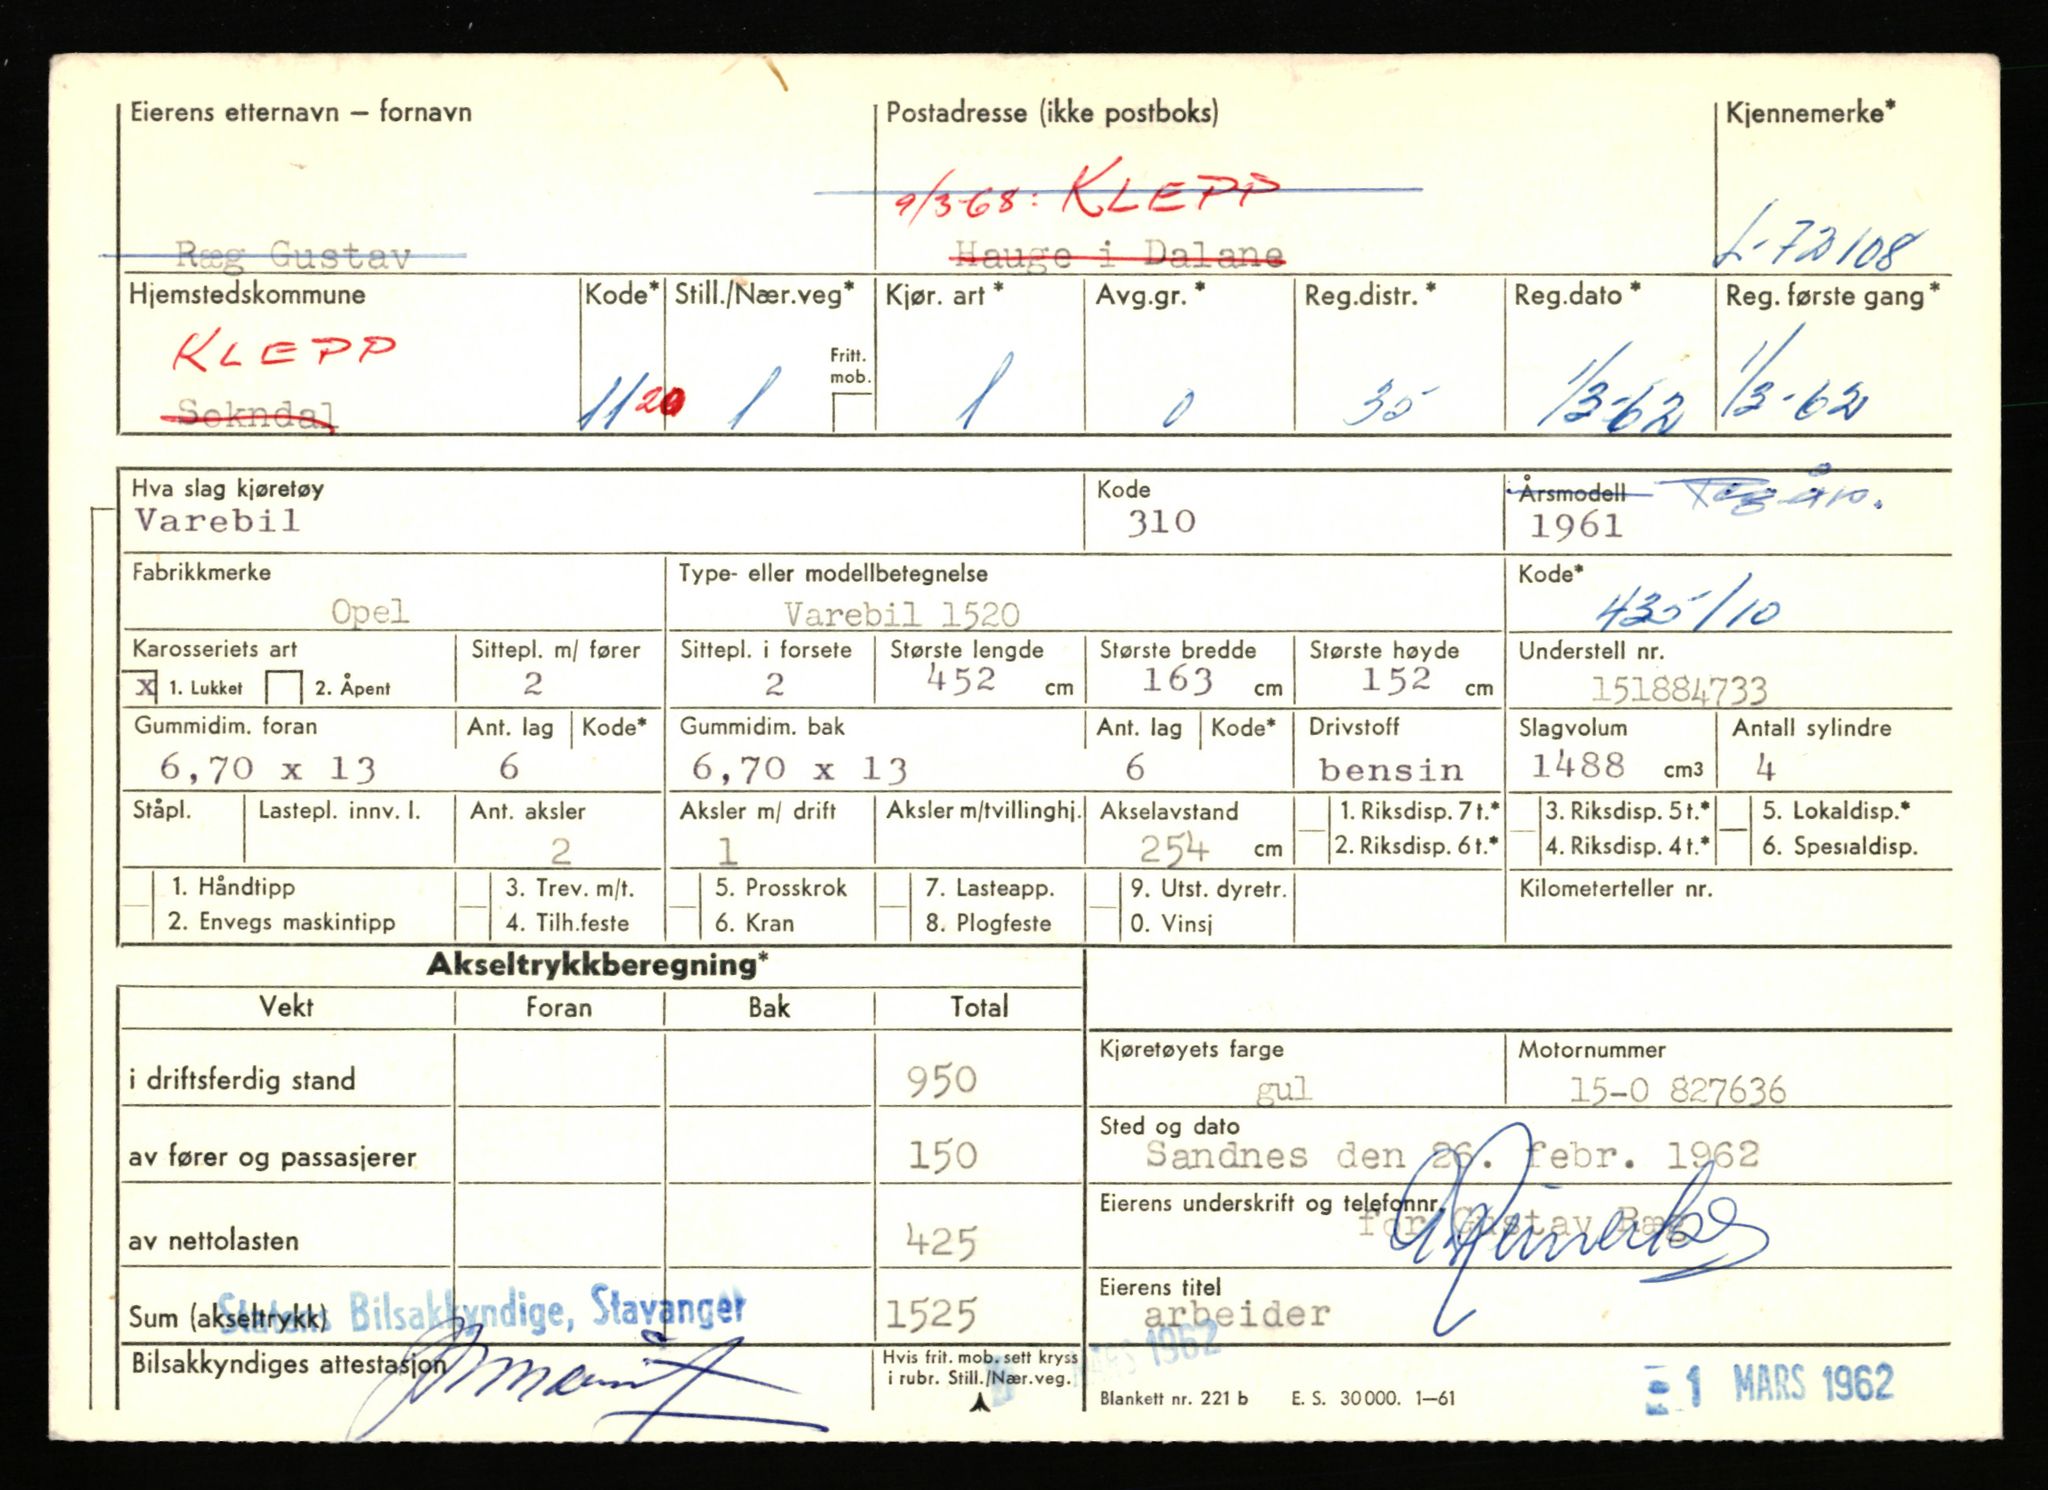 Eierens etternavn – fornavn
Postadresse (ikke postboks)
Kjennemerke*
9/3-68: KLEPP
Ræg Gustav
Hauge i Dalane
L-72108
Hjemstedskommune
Kode*
Still./Nær.veg*
Kjør. art*
Avg.gr.*
Reg.distr.*
Reg.dato*
Reg. første gang*
KLEPP
Fritt. mob.
Sokndal
1120
1
1
0
35
1/3-62
1/3-62
Hva slag kjøretøy
Kode
Årsmodell Reg.år.
Varebil
310
1961
Fabrikkmerke
Type- eller modellbetegnelse
Kode*
Opel
Varebil 1520
435/10
Karosseriets art
Sittepl. m/ fører
Sittepl. i forsete
Største lengde
Største bredde
Største høyde
Understell nr.
x 1. Lukket 2. Åpent
2
2
452 cm
163 cm
152 cm
151884733
Gummidim. foran
Ant. lag
Kode*
Gummidim. bak
Ant. lag
Kode*
Drivstoff
Slagvolum
Antall sylindre
6,70 x 13
6
6,70 x 13
6
bensin
1488 cm3
4
Ståpl.
Lastepl. innv. l.
Ant. aksler
Aksler m/ drift
Aksler m/tvillinghj.
Akselavstand
1. Riksdisp. 7 t.*
3. Riksdisp. 5 t.*
5. Lokaldisp.*
2
1
254 cm
2. Riksdisp. 6 t.*
4. Riksdisp. 4 t.*
6. Spesialdisp.
1. Håndtipp
3. Trev. m/t.
5. Prosskrok
7. Lasteapp.
9. Utst. dyretr.
Kilometerteller nr.
2. Envegs maskintipp
4. Tilh.feste
6. Kran
8. Plogfeste
0. Vinsj
Akseltrykkberegning*
Vekt
Foran
Bak
Total
Kjøretøyets farge
Motornummer
i driftsferdig stand
950
gul
15-0 827636
Sted og dato
av fører og passasjerer
150
Sandnes den 26. febr. 1962
Eierens underskrift og telefonnr.
for Gustav Ræg
av nettolasten
425
Eierens titel
Sum (akseltrykk)
Statens Bilsakkyndige, Stavanger
1525
arbeider
Bilsakkyndiges attestasjon
Hvis frit. mob. sett kryss
i rubr. Still./Nær.veg.
MARS 1962
Blankett nr. 221 b E. S. 30000. 1—61
1 MARS 1962